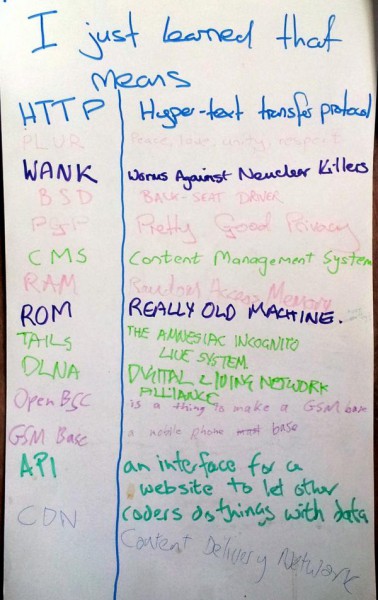 I just learned that
means
HTTP Hyper-text transfer protocol
PLUR Peace, love, unity, respect
WANK Worms Against Neuclear Killers
BSD BACK-SEAT DRIVER
PGP Pretty Good Privacy
CMS Content Management System
RAM Random Access Memory
ROM REALLY OLD MACHINE.
TAILS THE AMNESIAC INCOGNITO
LIVE SYSTEM.
DLNA DVGITAL LIVING NETWORK
ALLIANCE
OpenBSC is a thing to make a GSM base
GSM Base a mobile phone base
API an interface for a
website to let other
coders do things with data
CDN Content Delivery Network